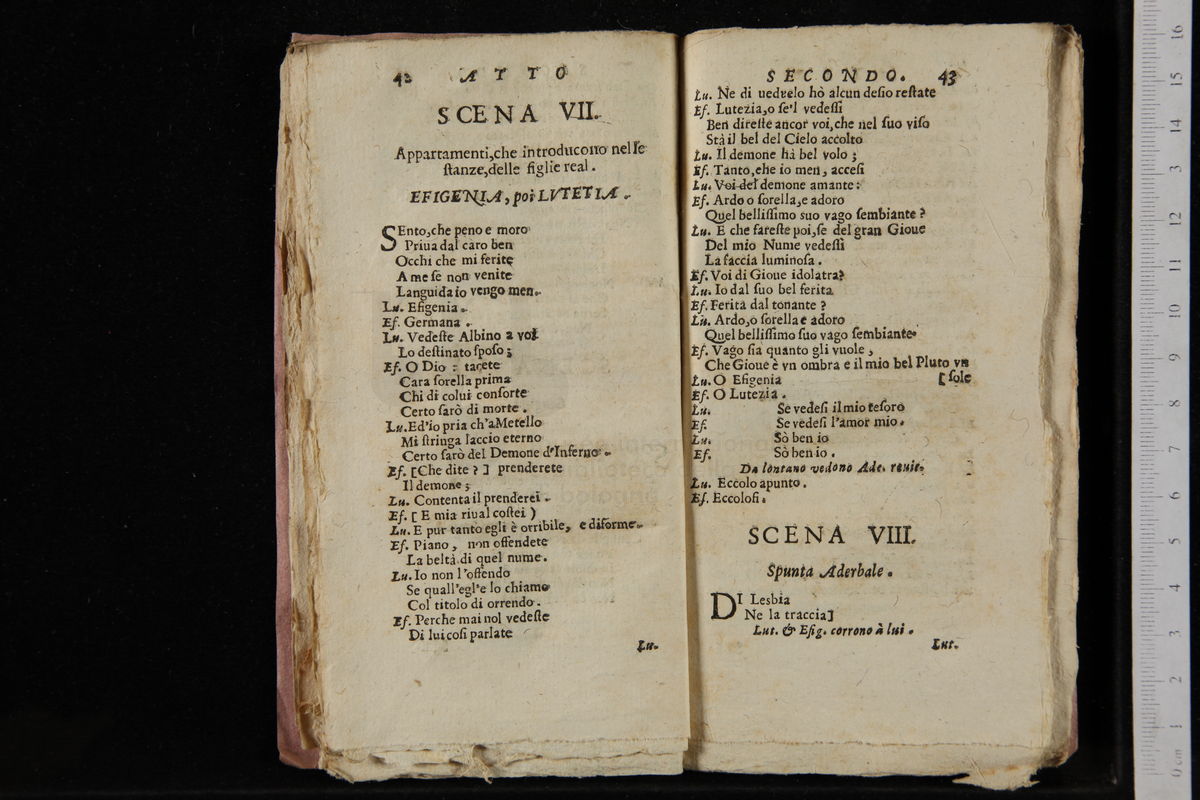 42 ATTO
SCENA VII.
Appartamenti,che introducono nelle
ſtanze,delle figlie real.
EFIGENIA, poi LVTETIA.
SEnto,che peno e moro
Priua dal caro ben
Occhi che mi ferite
A me ſe non venite
Languida io vengo men.
Lu. Efigenia.
Ef. Germana.
Lu. Vedeſte Albino a voi
Lo deſtinato ſpoſo;
Ef. O Dio : tacete
Cara ſorella prima
Chi di colui conſorte
Certo ſarò di morte.
Lu.Ed'io pria ch'a Metello
Mi ſtringa laccio eterno
Certo ſarò del Demone d'Inferno.
Ef. [Che dite ? ] prenderete
Il demone;
Lu. Contenta il prenderei.
Ef. [ E mia riual coſtei )
Lu. E pur tanto egli è orribile, e diforme.
Ef. Piano, non offendete
La beltà di quel nume.
Lu. Io non l'offendo
Se quall'egl'e lo chiamo
Col titolo di orrendo.
Ef. Perche mai nol vedeſte
Di lui coſi parlate
Lu.
SECONDO. 43
Lu. Ne di uederelo hò alcun deſio reſtate
Ef. Lutezia,o ſe'l vedeſſi
Ben direſte ancor voi,che nel ſuo viſo
Stà il bel del Cielo accolto
Lu. Il demone hà bel volo ;
Ef. Tanto,che io men, acceſi
Lu. Voi del demone amante:
Ef. Ardo o ſorella,e adoro
Quel belliſſimo suo vago ſembiante ?
Lu. E che fareſte poi,ſe del gran Gioue
Del mio Nume vedeſſi
La faccia luminoſa.
Ef. Voi di Gioue idolatra?
Lu. Io dal ſuo bel ferita
Ef. Ferita dal tonante ?
Lu. Ardo,o ſorella e adoro
Quel belliſſimo ſuo vago ſembiante.
Ef. Vago ſia quanto gli vuole,
Che Gioue è vn ombra e il mio bel Pluto vn
[ſole
Lu. O Efigenia
Ef. O Lutezia.
Lu. Se vedeſi il mio teſoro
Ef. Se vedeſi l'amor mio.
Lu. Sò ben io
Ef. Sò ben io.
Da lontano vedono Ade. venir.
Lu. Eccolo apunto.
Ef. Eccoloſi.
SCENA VIII.
Spunta Aderbale.
DI Lesbia
Ne la traccia]
Lut. & Efig. corrono à lui.
Lut.